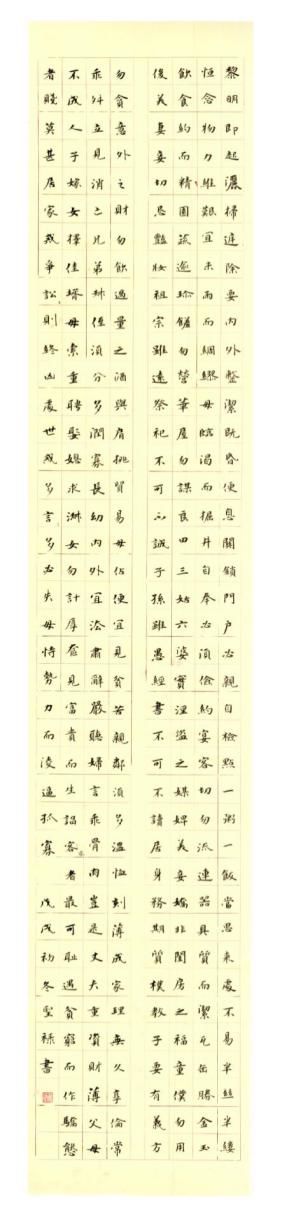 黎明即起灑掃庭除要內外整潔既昏便息關鎖門戶必親自檢點一粥一飯當思來處不易半絲半縷
恒念物力維艱宜未雨而綢繆毋臨渴而掘井自奉必須儉約宴客切勿流連器具質而潔瓦缶勝金玉
飲食約而精園蔬逾珍饈勿營華屋勿謀良田三姑六婆實淫盜之媒婢美妾嬌非閨房之福童僕勿用
俊美妻妾切忌豔妝祖宗雖遠祭祀不可不誠子孫雖愚經書不可不讀居身務期質樸教子要有義方
勿貪意外之財勿飲過量之酒與肩挑貿易毋佔便宜見貧苦親鄰須多溫恤刻薄成家理無久享倫常
乖舛立見消亡兄弟叔侄須分多潤寡長幼內外宜法肅辭嚴聽婦言乖骨肉豈是丈夫重資財薄父母
不成人子嫁女擇佳壻毋索重聘娶媳求淑女勿計厚奩見富貴而生諂容者最可恥遇貧窮而作驕態
者賤莫甚居家戒爭訟則終凶處世戒多言多必失毋恃勢力而淩逼孤寡 戊戌初冬聖祿書